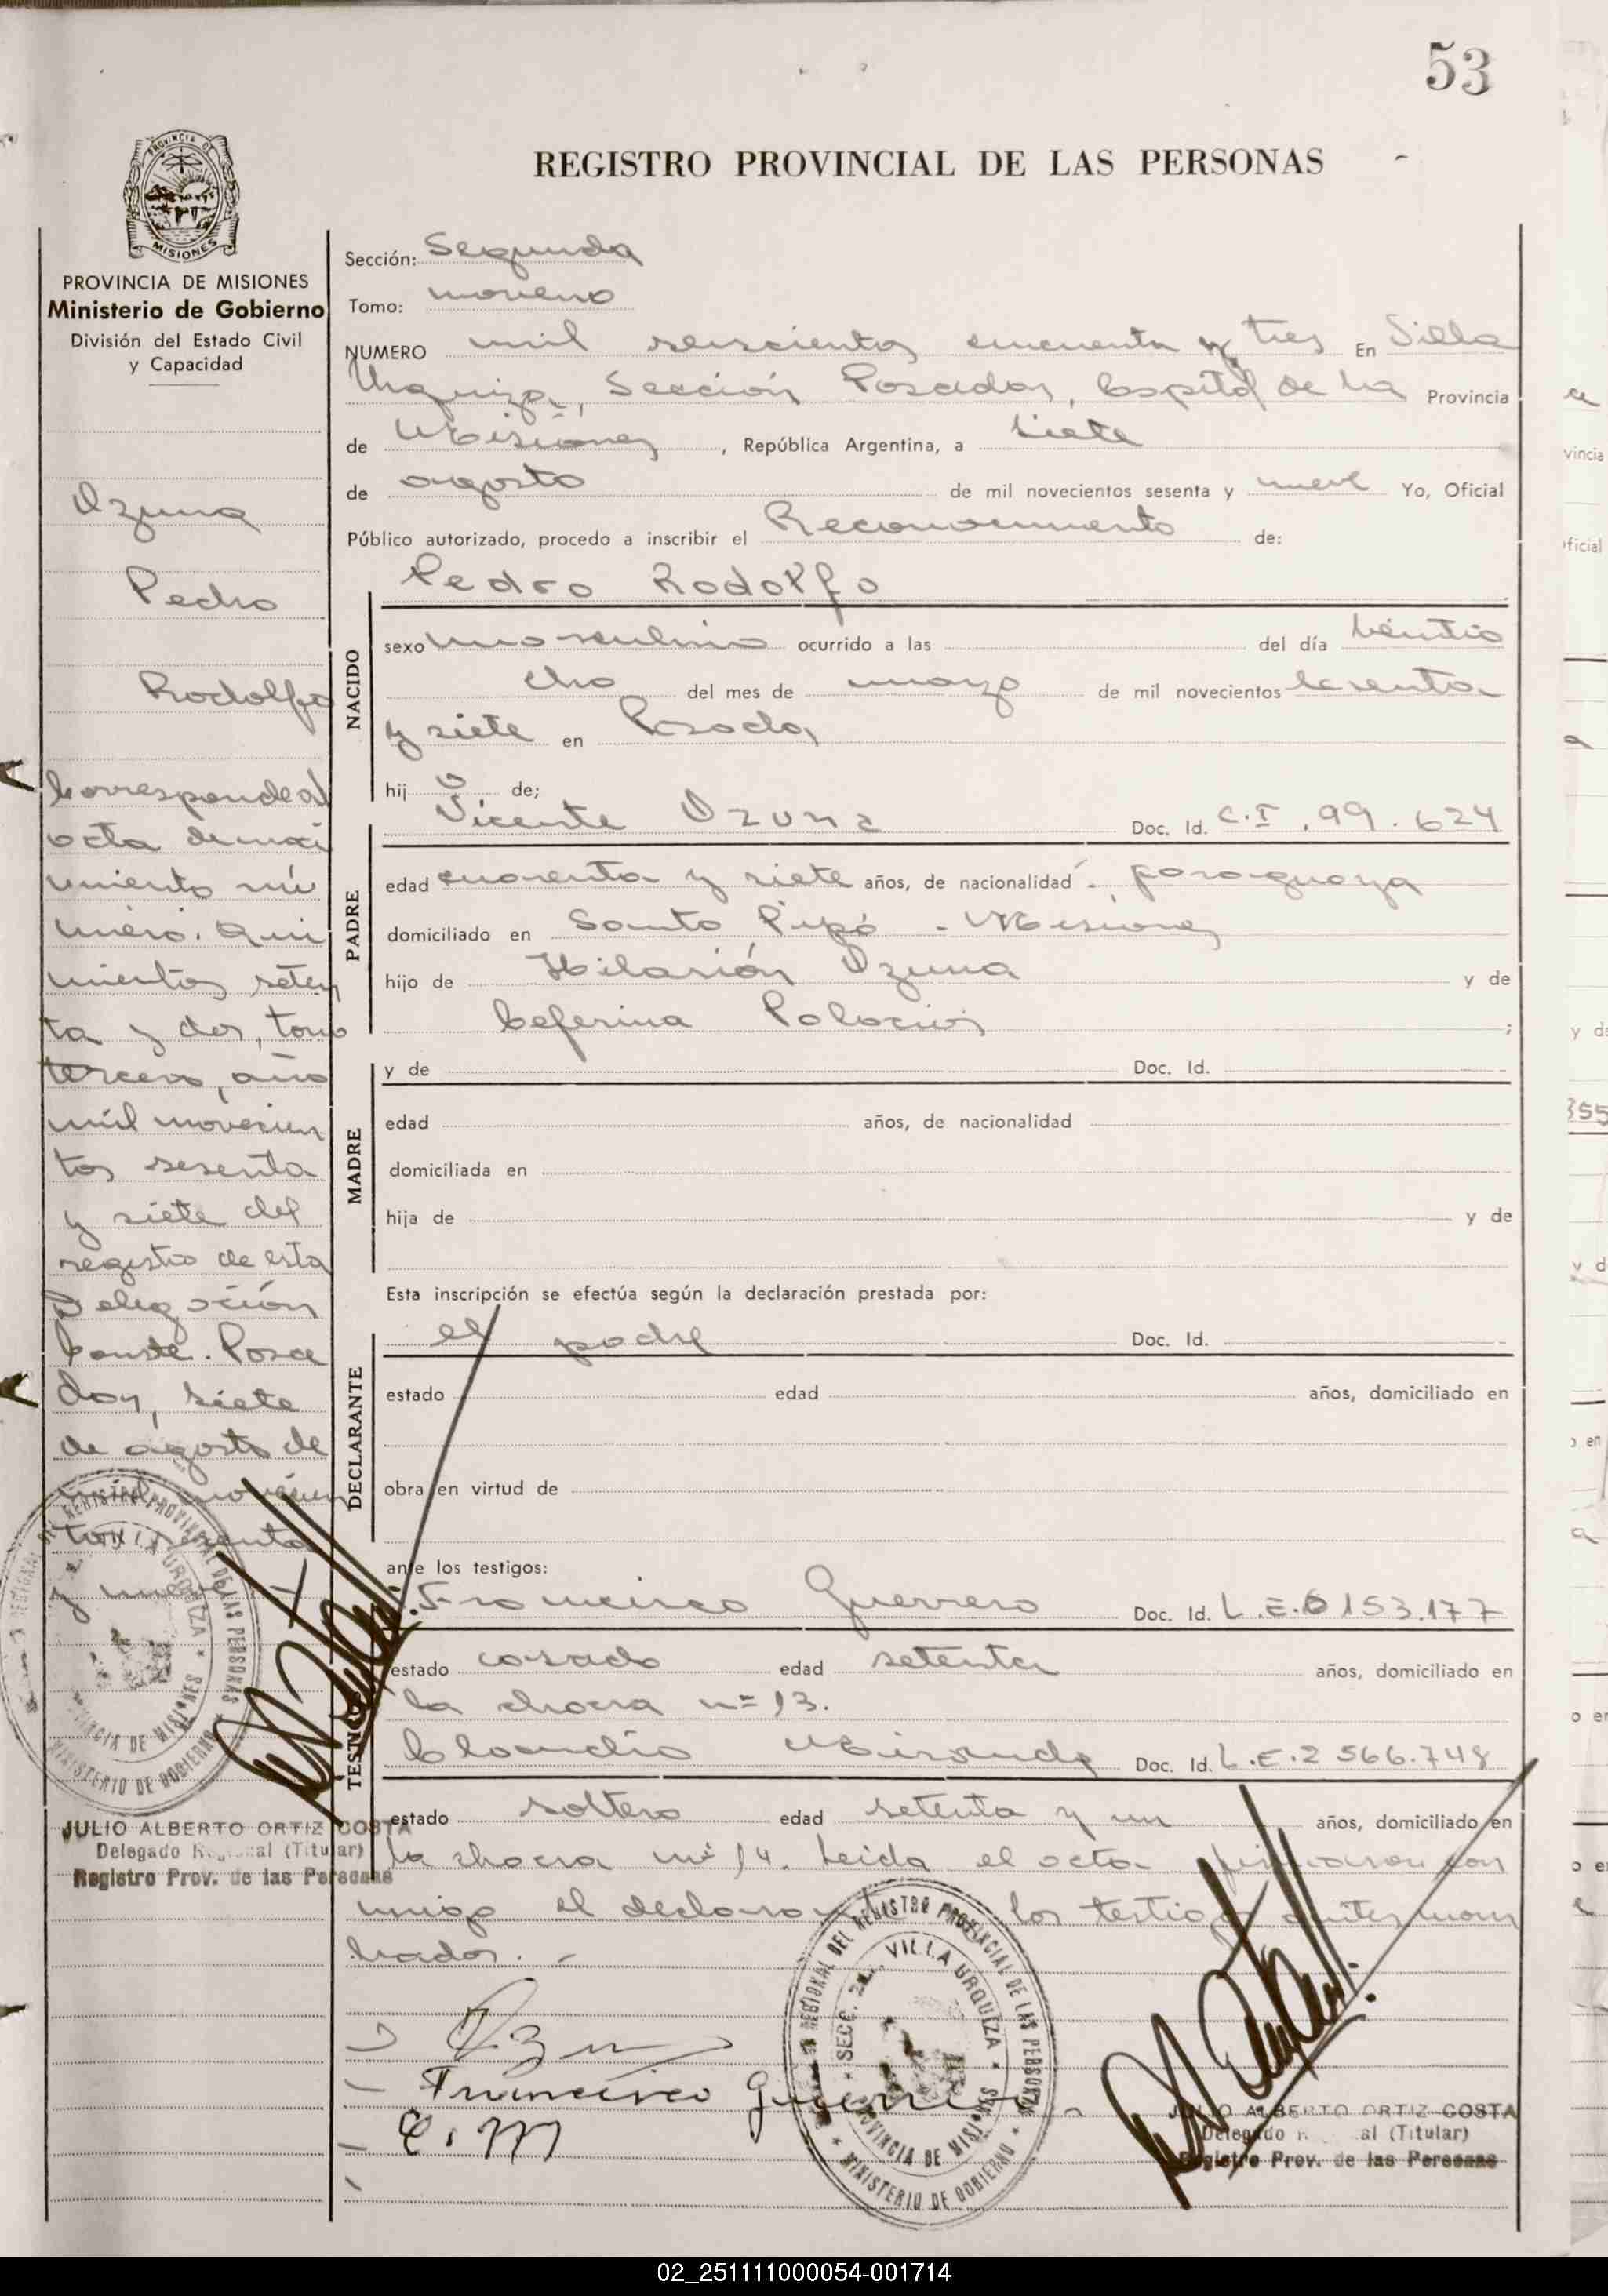 53
REGISTRO PROVINCIAL DE LAS PERSONAS
PROVINCIA DE MISIONES
Ministerio de Gobierno
División del Estado Civil
y Capacidad
Ozuna
Pedro
Rodolfo
Corresponde al
acta de naci
miento nú
mero. Qui
nientos seten
ta y dos, tomo
tercero, año
mil novecien
tos sesenta
y siete del
registro de esta
Delegación
Conste. Posa
das, siete
de agosto de
mil novecien
tos sesenta
y nueve
JULIO ALBERTO ORTIZ COSTA
Delegado Regional (Titular)
Registro Prov. de las Personas
Sección: Segunda
Tomo: noveno
NUMERO mil seiscientos cincuenta y tres En Villa
Urquiza, Sección Posadas, Capital de la Provincia
de Misiones, República Argentina, a siete
de agosto de mil novecientos sesenta y nueve Yo, Oficial
Público autorizado, procedo a inscribir el Reconocimiento de:
Pedro Rodolfo
NACIDO
sexo masculino ocurrido a las del día veintio
cho del mes de marzo de mil novecientos sesenta
y siete en Posadas
hij o de;
PADRE
Vicente Ozuna Doc. Id. C.I. 99.624
edad cuarenta y siete años, de nacionalidad paraguaya
domiciliado en Santo Pipó - Misiones
hijo de Hilarión Ozuna y de
Ceferina Palacios ;
MADRE
y de Doc. Id.
edad años, de nacionalidad
domiciliada en
hija de y de
Esta inscripción se efectúa según la declaración prestada por:
DECLARANTE
el padre Doc. Id.
estado edad años, domiciliado en
obra en virtud de
ante los testigos:
TESTIGOS
Francisco Guerrero Doc. Id. L.E.0153.177
estado casado edad setenta años, domiciliado en
la chacra nº 13.
Claudio Miranda Doc. Id. L.E.2566.748
estado soltero edad setenta y un años, domiciliado en
la chacra nº 14. Leida el acta firmaron con
migo el declarante los testigos antes nom
brados. -
Ozuna
Francisco Guerrero
C. M
REGIONAL DEL REGISTRO PROVINCIAL DE LAS PERSONAS
SECC. 2da. VILLA URQUIZA
PROVINCIA DE MISIONES
MINISTERIO DE GOBIERNO
JULIO ALBERTO ORTIZ COSTA
Delegado al (Titular)
Registro Prov. de las Personas
02_251111000054-001714